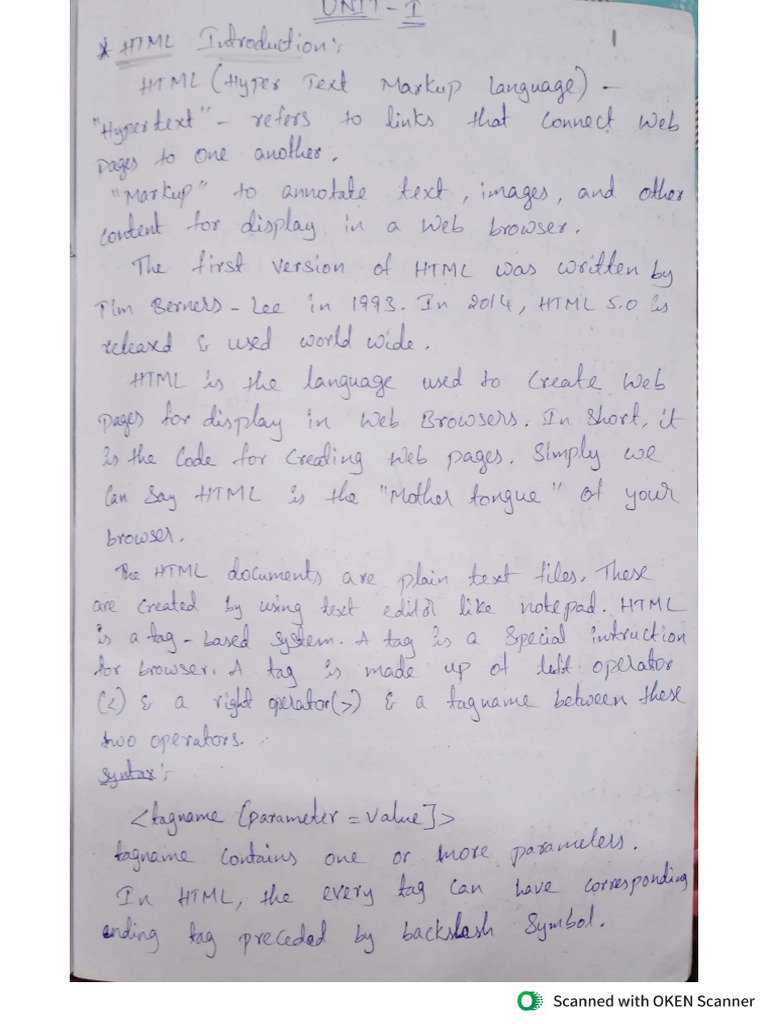 UNIT - I
* HTML Introduction:
1
HTML (Hyper Text Markup Language) -
"Hypertext" - refers to links that connect Web
pages to one another.
"Markup" to annotate text, images, and other
content for display in a Web browser.
The first version of HTML was written by
Tim Berners-Lee in 1993. In 2014, HTML 5.0 is
released & used world wide.
HTML is the language used to create Web
pages for display in Web Browsers. In Short, it
is the Code for Creating Web pages. Simply we
Can Say HTML is the "Mother tongue" of your
browser.
The HTML documents are plain text files. These
are created by using text editor like notepad. HTML
is a tag-based system. A tag is a Special intruction
for browser. A tag is made up of left operator
(<) & a right operator(>) & a tagname between these
two operators.
Syntax:
<tagname [parameter = value]>
tagname contains one or more parameters.
In HTML, the every tag can have corresponding
ending tag preceded by backslash Symbol.
Scanned with OKEN Scanner